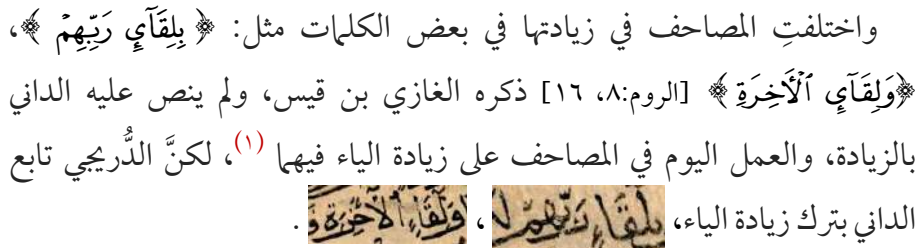 واختلفتِ المصاحف في زيادتها في بعض الكلمات مثل: ﴿ بِلِقَآيِٕ رَبِّهِمۡ ﴾،
﴿وَلِقَآيِٕ ٱلۡأٓخِرَةِ ﴾ [الروم:٨، ١٦] ذكره الغازي بن قيس، ولم ينص عليه الداني
بالزيادة، والعمل اليوم في المصاحف على زيادة الياء فيهما (١)، لكنَّ الدُّريجي تابع
الداني بترك زيادة الياء، بِلِقَاءِ رَبِّهِمْ لَ ، وَلِقَاءِ الْآخِرَةِ وَ .